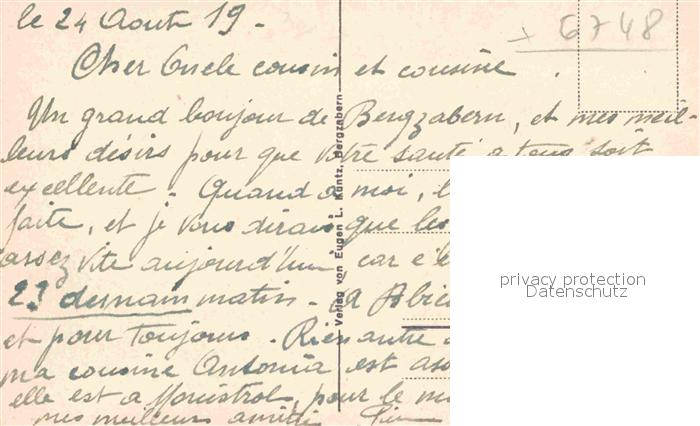 le 24 Aout 19 -
6748
Cher Oncle cousin et cousine
Un grand bonjour de Bergzabern, et mes meil-
leurs désirs pour que votre santé a tous soit
excellente. Quand a moi,
faite, et je vous dirais que les
assez vite aujourd'hui, car c'
23 demain matin -
et pour toujours. Rien autre
ma cousine Antonia est
elle est a Monistrol, pour le
mes meilleurs
Verlag von Eugen L. Küntz, Bergzabern
privacy protection
Datenschutz